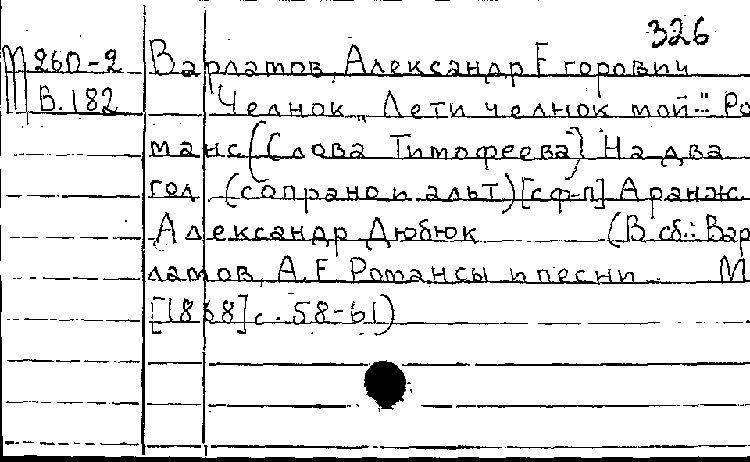 326
М 260-2 Варламов, Александр Егорович
В.182 Челнок „Лети челнок мой.." Ро
манс (Слова Тимофеева) На два
гол (сопрано и альт) [с ф-п] Аранж.
Александр Дюбюк (В сб.: Вар
ламов, А.Е Романсы и песни. М
[1868] с. 58-61)